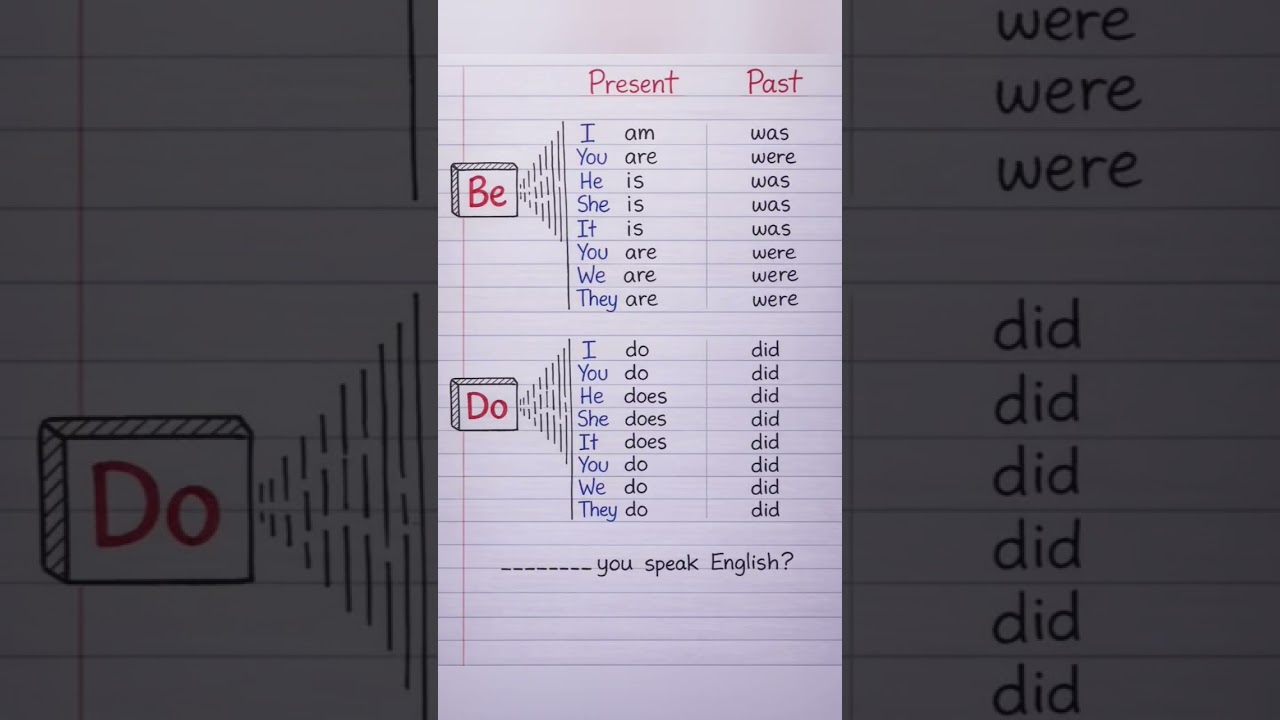 Present Past
I am was
You are were
He is was
Be
She is was
It is was
You are were
We are were
They are were
I do did
You do did
He does did
Do
She does did
It does did
You do did
We do did
They do did
________ you speak English?
were
were
were
Do
did
did
did
did
did
did